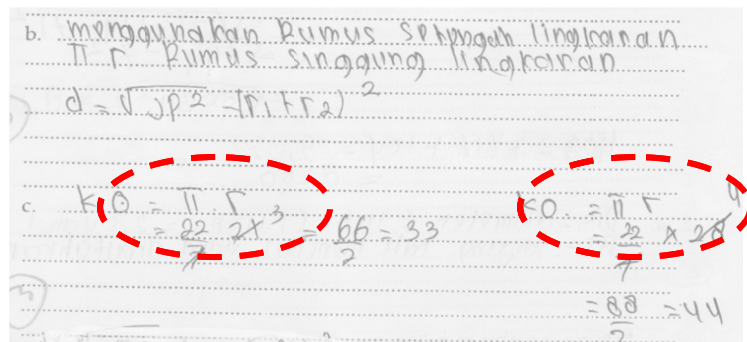 b. menggunakan Rumus setengah lingkaran
π r Rumus singgung lingkaran
d = √JP² - (r₁ + r₂)²
c. kO = π . r
= 22/7 21 3 = 66/2 = 33
kO. = π r
= 22/7 x 28 4
= 88/2 = 44